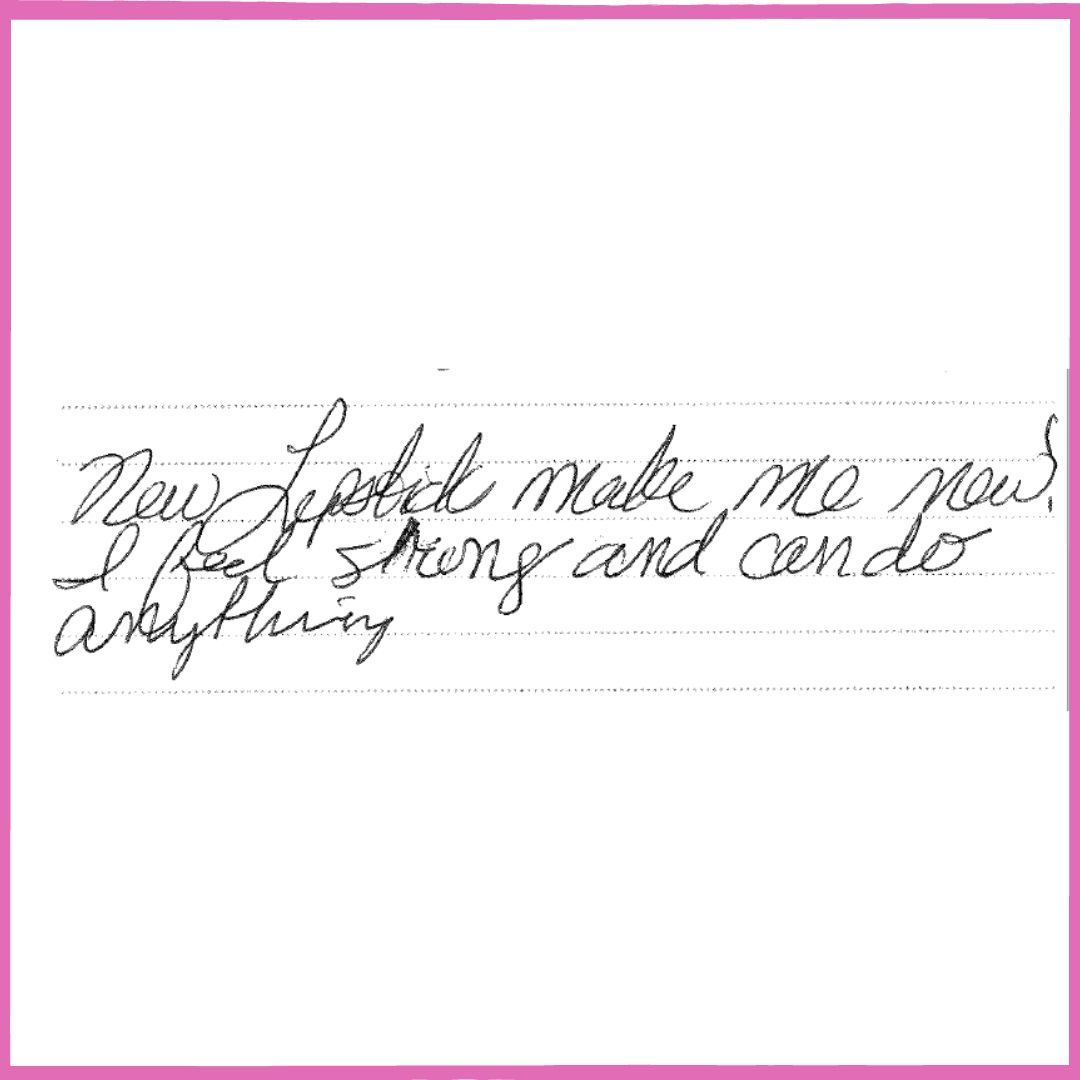 New Lipstick make me new!
I feel strong and can do
anything